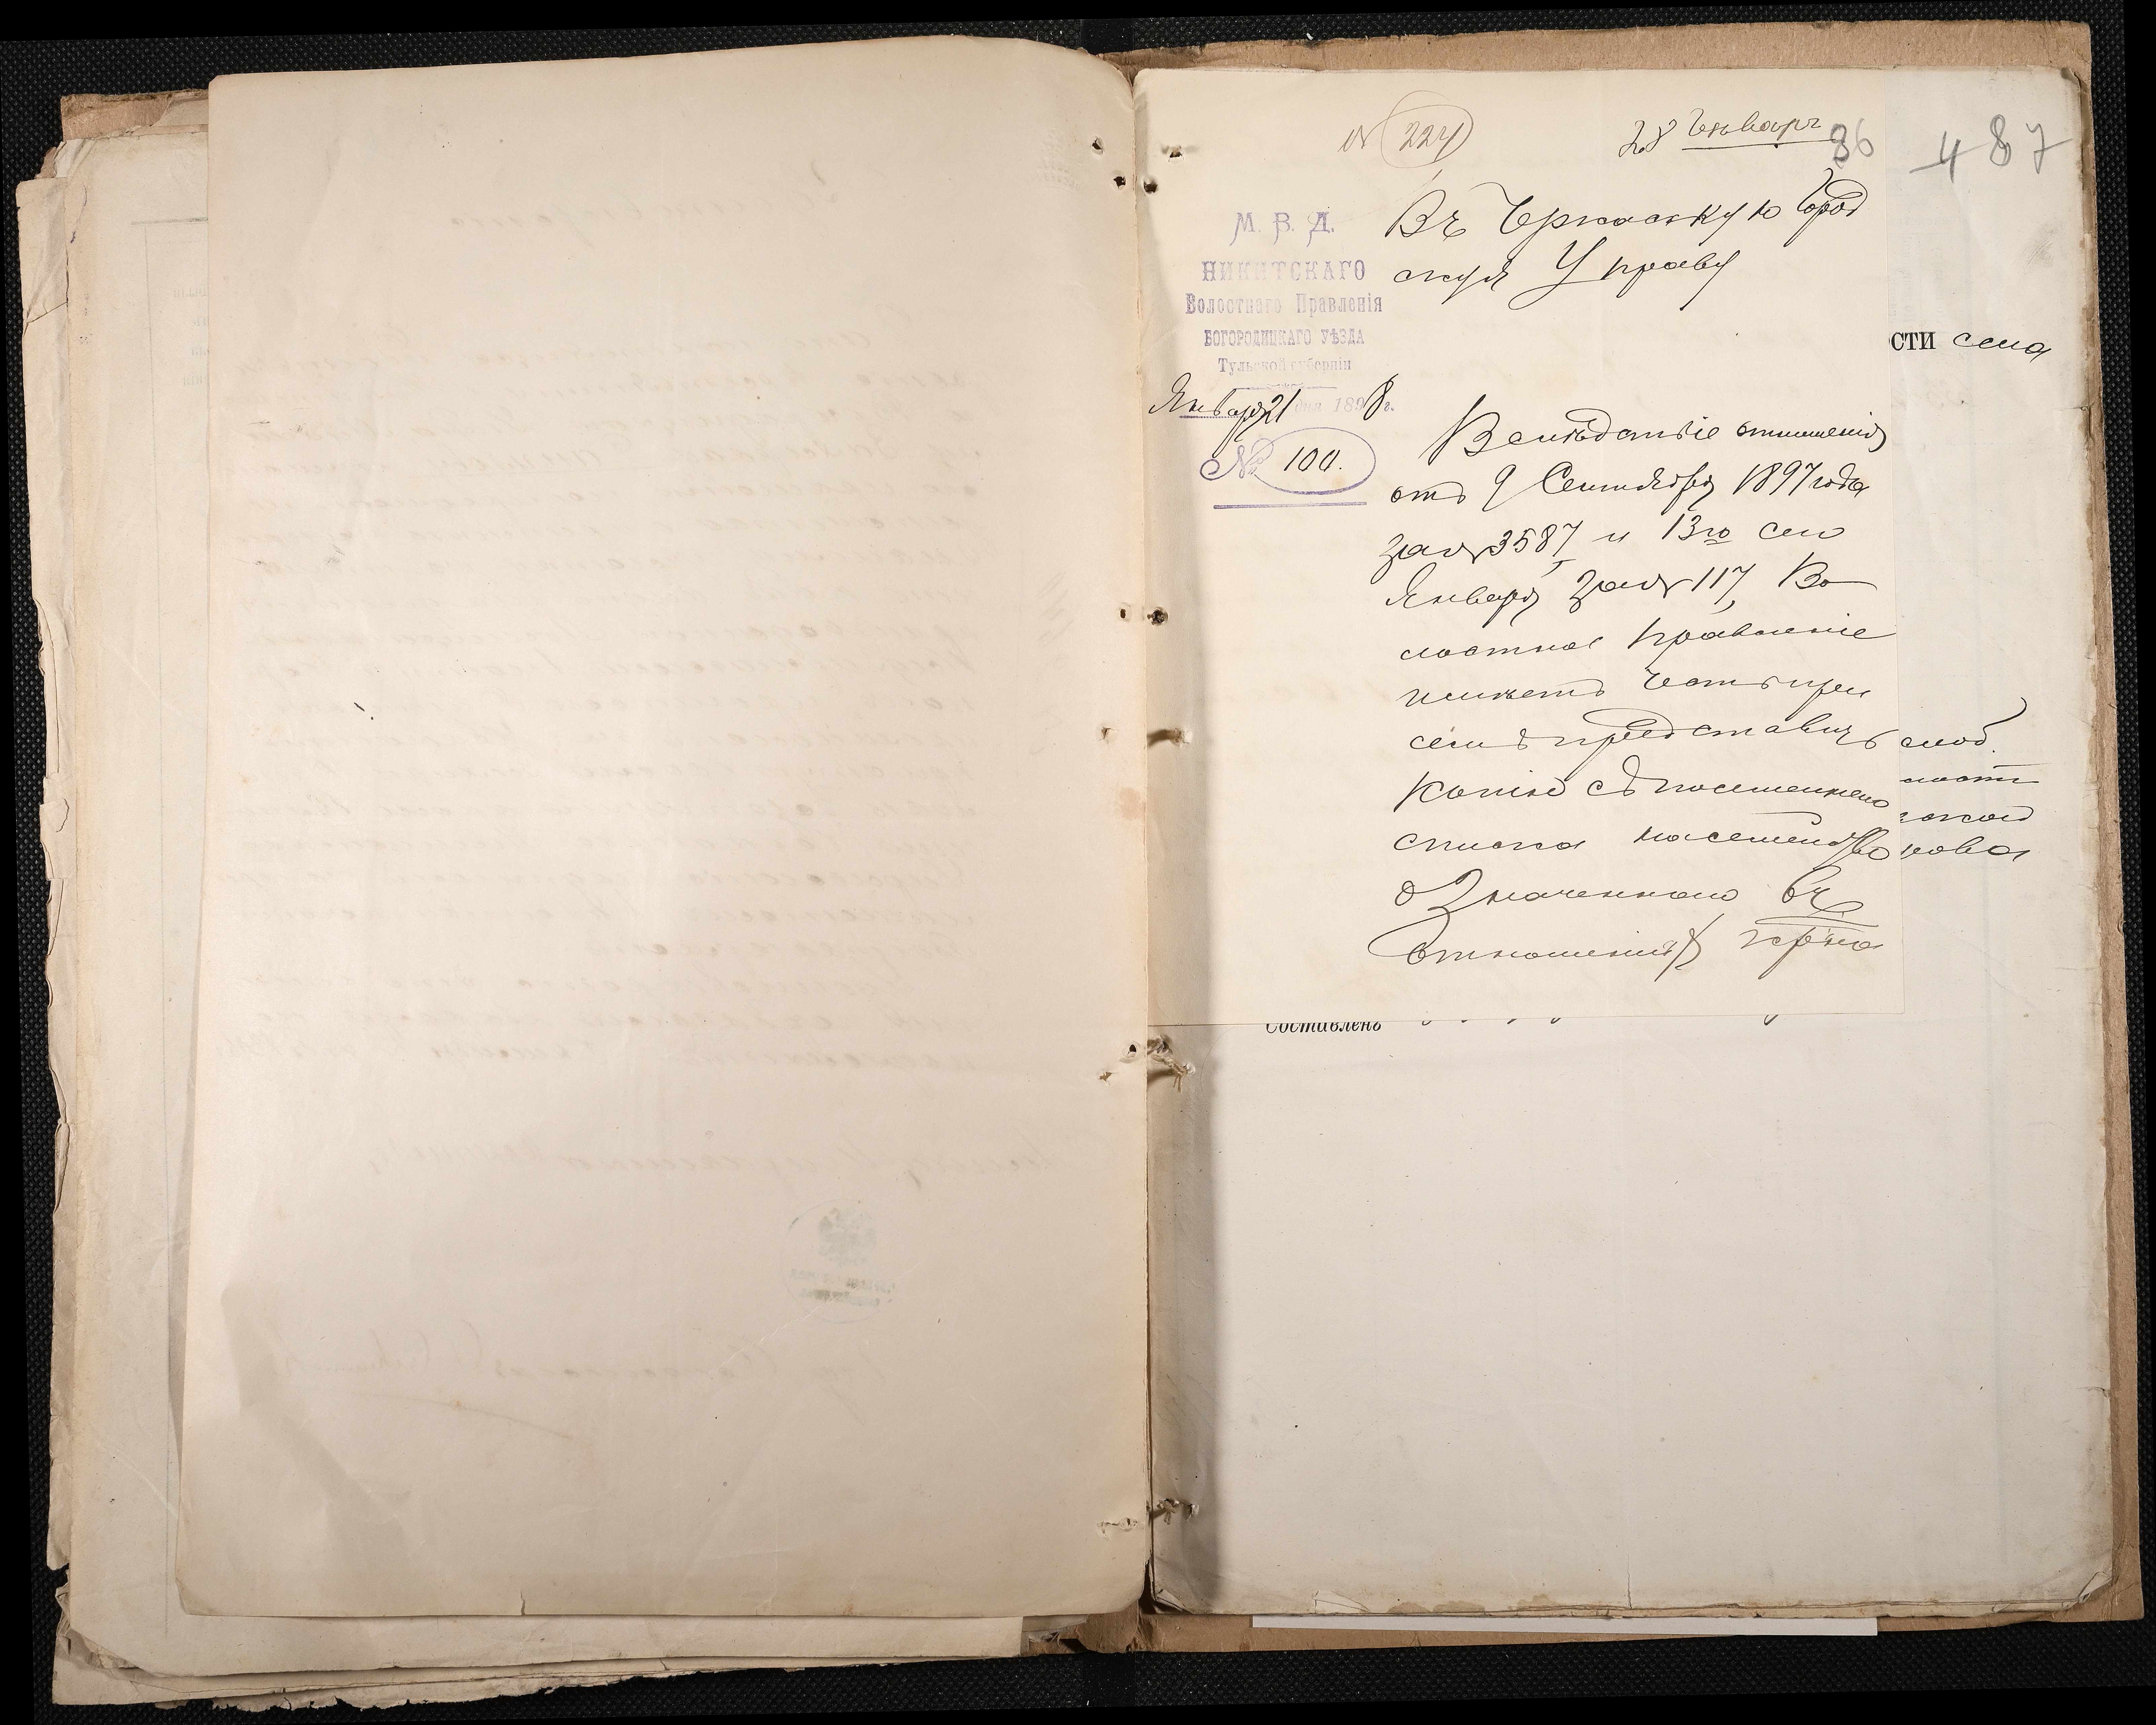 № 224
28 Январ
36
487
М. В. Д.
НИКИТСКАГО
Волостнаго Правленія
БОГОРОДИЦКАГО УѢЗДА
Тульской губерніи
Января 21 дня 1898 г.
№ 100.
Въ Черкаскую Город
скую Управу
Вслѣдствіе отношенія
отъ 9 Сентября 1897 года
за № 3587, и 13го сего
Января за № 117, Во
лостное Правленіе
имѣетъ честь при
семъ представить
копію съ посемейнаго
списка на семейство
означеннаго въ
отношеніях
СТИ села
слоб.
Составленъ